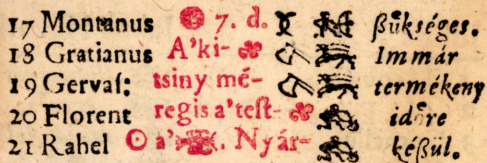 17 Montanus 🌑 7. d. ßükséges.
18 Gratianus A'ki- Immár
19 Gervas: tsiny mé- termékeny
20 Florent regis a'test- időre
21 Rahel ☉ a' . Nyár- kéßül.